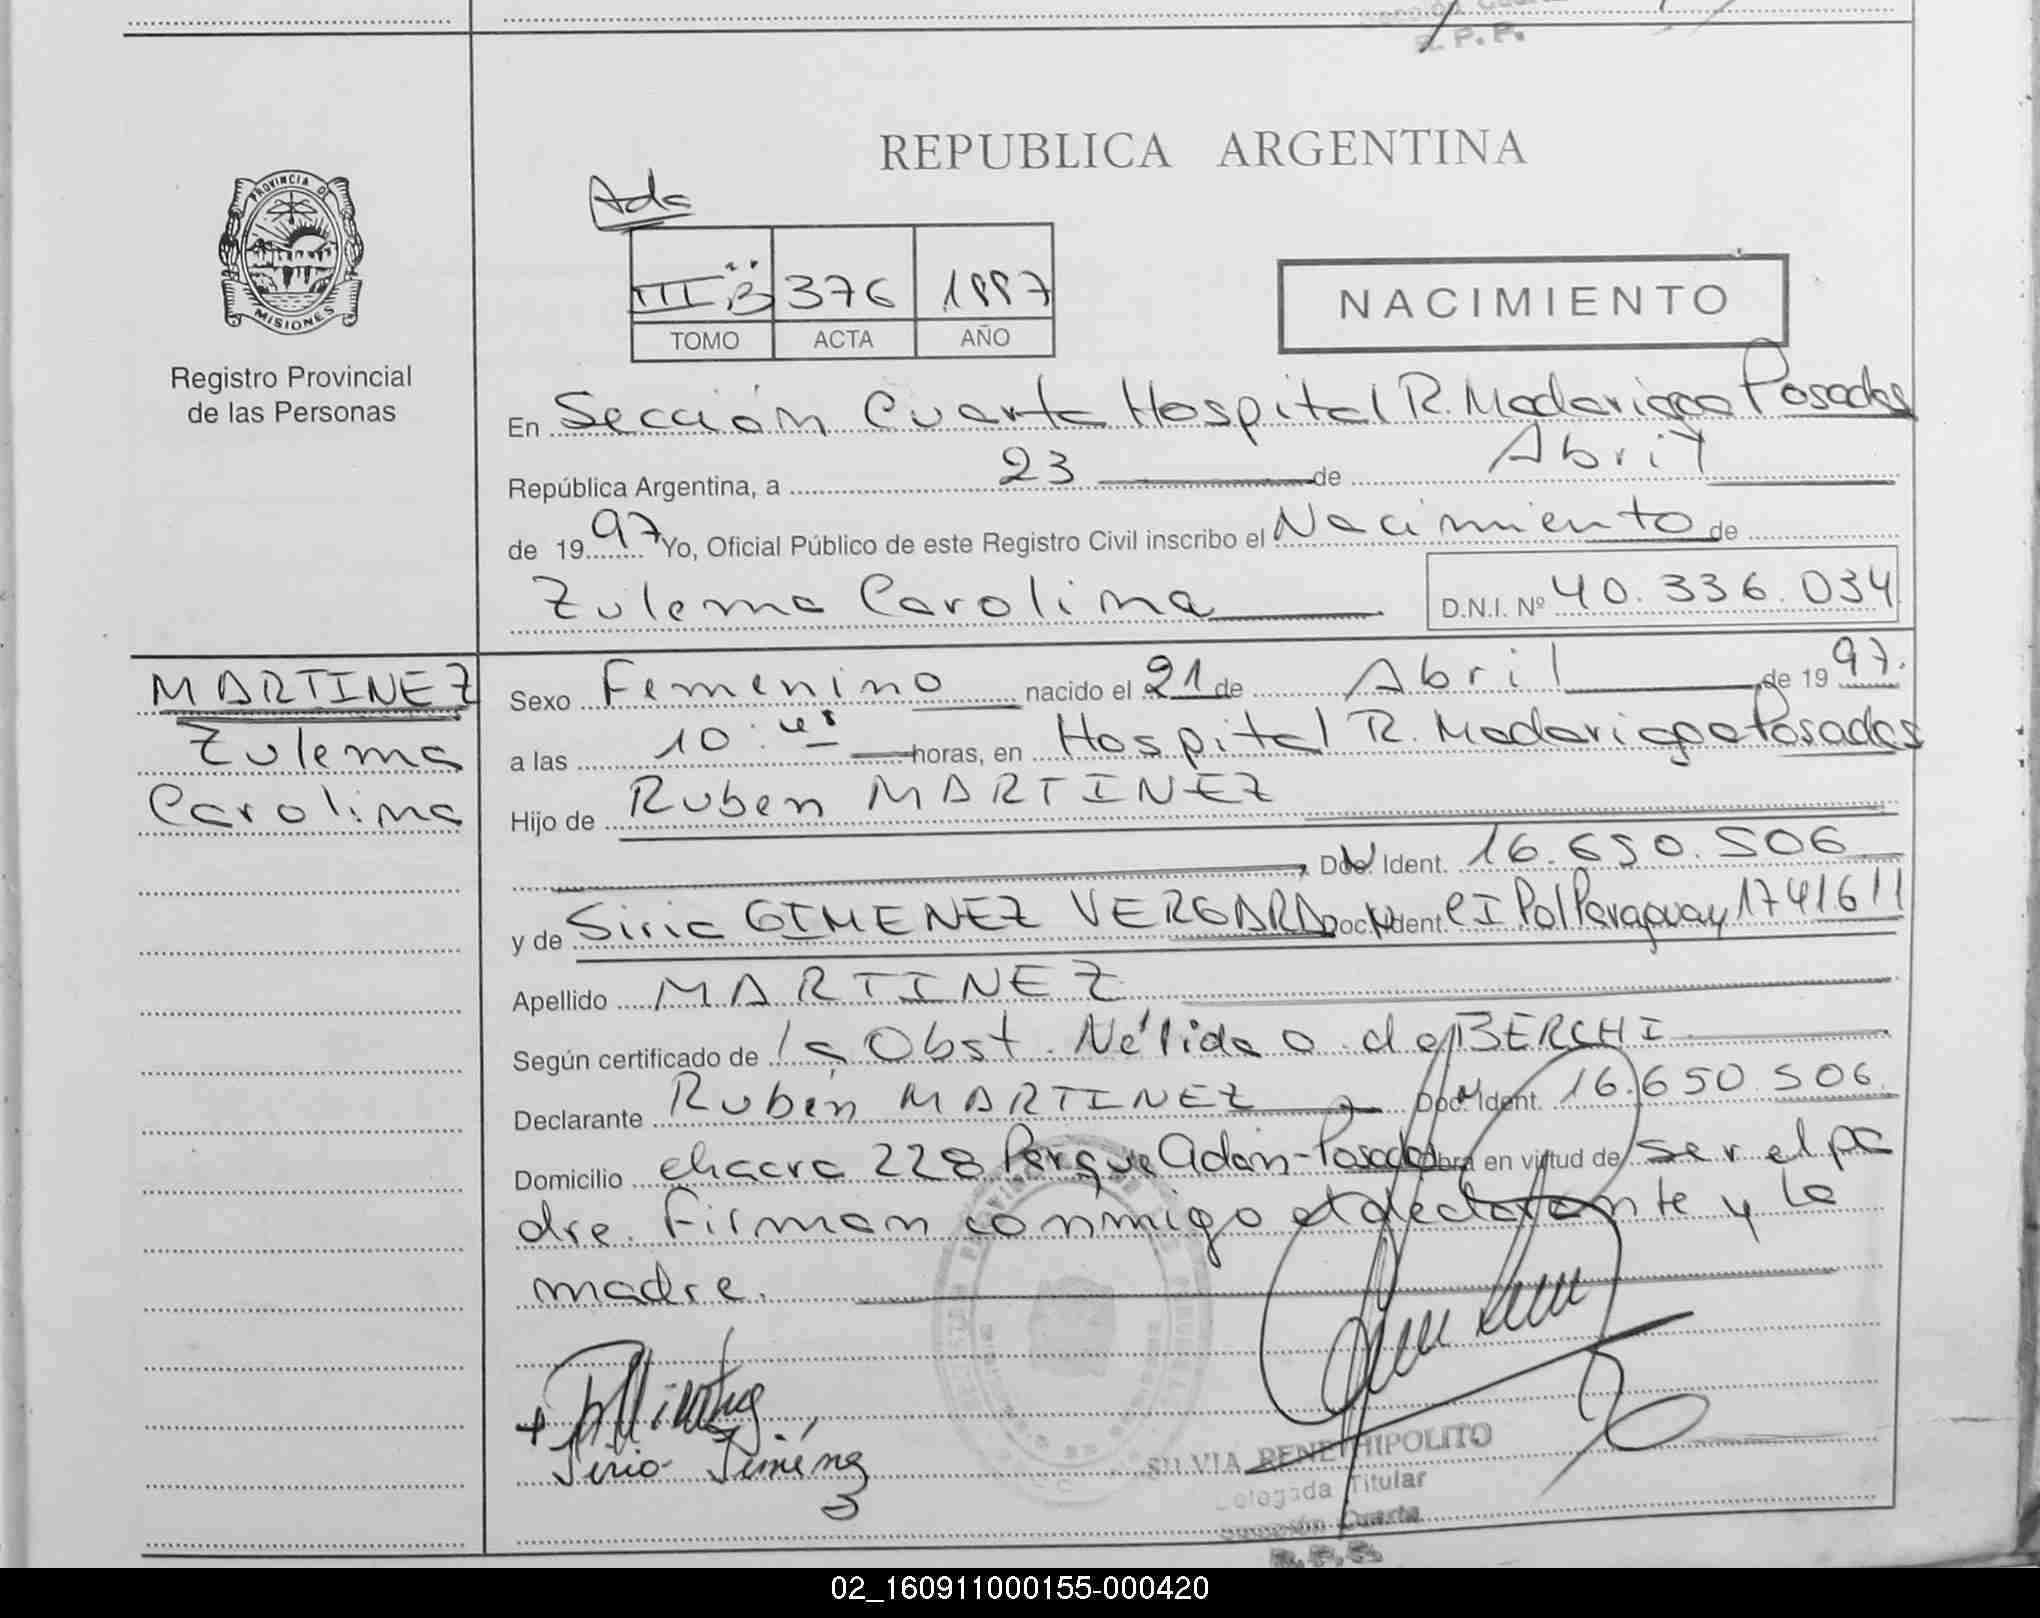 R. P. P.
REPUBLICA ARGENTINA
PROVINCIA DE
MISIONES
Registro Provincial
de las Personas
Ada
III B 376 1997
TOMO ACTA AÑO
NACIMIENTO
En Sección Cuarta Hospital R. Madariaga Posadas
República Argentina, a 23 de Abril
de 1997 Yo, Oficial Público de este Registro Civil inscribo el Nacimiento de
Zulema Carolina D.N.I. Nº 40.336.034
MARTINEZ
Zulema
Carolina
Sexo Femenino nacido el 21 de Abril de 1997.
a las 10:45 horas, en Hospital R. Madariaga Posadas
Hijo de Ruben MARTINEZ
Doc. N Ident. 16.650.506
y de Siria GIMENEZ VERGARA Doc. N Ident. CI Pol Paraguay 1741611
Apellido MARTINEZ
Según certificado de la Obst. Nélida O. de BERCHI
Declarante Rubén MARTINEZ Doc. N Ident. 16.650.506.
Domicilio chacra 228 Parque Adam-Posadas Obra en virtud de ser el pa
dre. Firman conmigo el declarante y la
madre.
SILVIA RENE HIPOLITO
Delegada Titular
Sección Cuarta
R.P.P.
02_160911000155-000420